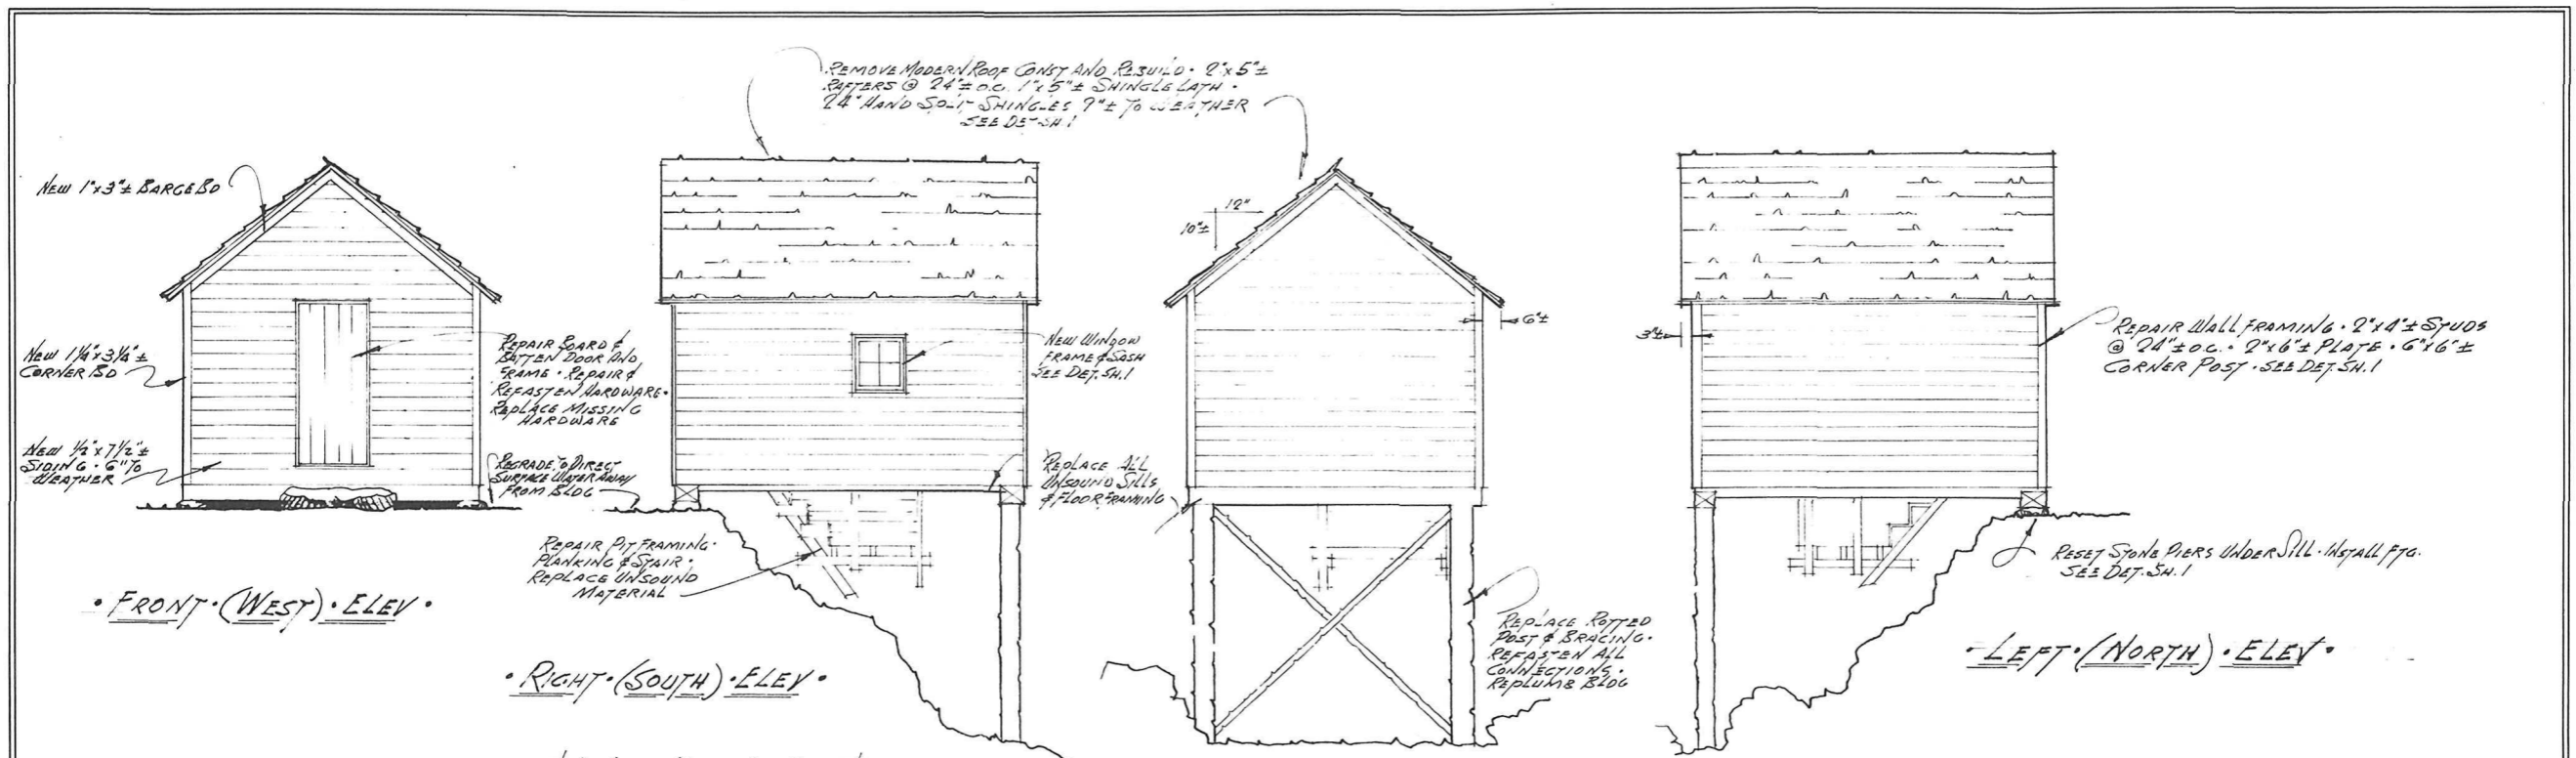 REMOVE MODERN ROOF CONST AND REBUILD · 2"x5"±
RAFTERS @ 24"± O.C. 1"x5"± SHINGLE LATH ·
24" HAND SPLIT SHINGLES 9"± TO WEATHER
SEE DET SH.1
NEW 1"x3"± BARGE BD
NEW 1¼"x3¼"±
CORNER BD
NEW ½"x7½"±
SIDING · 6" TO
WEATHER
REPAIR BOARD &
BATTEN DOOR AND
FRAME · REPAIR &
REFASTEN HARDWARE ·
REPLACE MISSING
HARDWARE
REGRADE TO DIRECT
SURFACE WATER AWAY
FROM BLDG
· FRONT · (WEST) · ELEV ·
NEW WINDOW
FRAME & SASH
SEE DET. SH.1
REPLACE ALL
UNSOUND SILLS
& FLOOR FRAMING
REPAIR PIT FRAMING ·
PLANKING & STAIR ·
REPLACE UNSOUND
MATERIAL
· RIGHT · (SOUTH) · ELEV ·
12"
10"±
6"±
REPLACE ROTTED
POST & BRACING ·
REFASTEN ALL
CONNECTIONS ·
REPLUMB BLDG
3"±
REPAIR WALL FRAMING · 2"x4"± STUDS
@ 24"± O.C. · 2"x6"± PLATE · 6"x6"±
CORNER POST · SEE DET. SH.1
RESET STONE PIERS UNDER SILL · INSTALL FTG.
SEE DET. SH.1
· LEFT · (NORTH) · ELEV ·